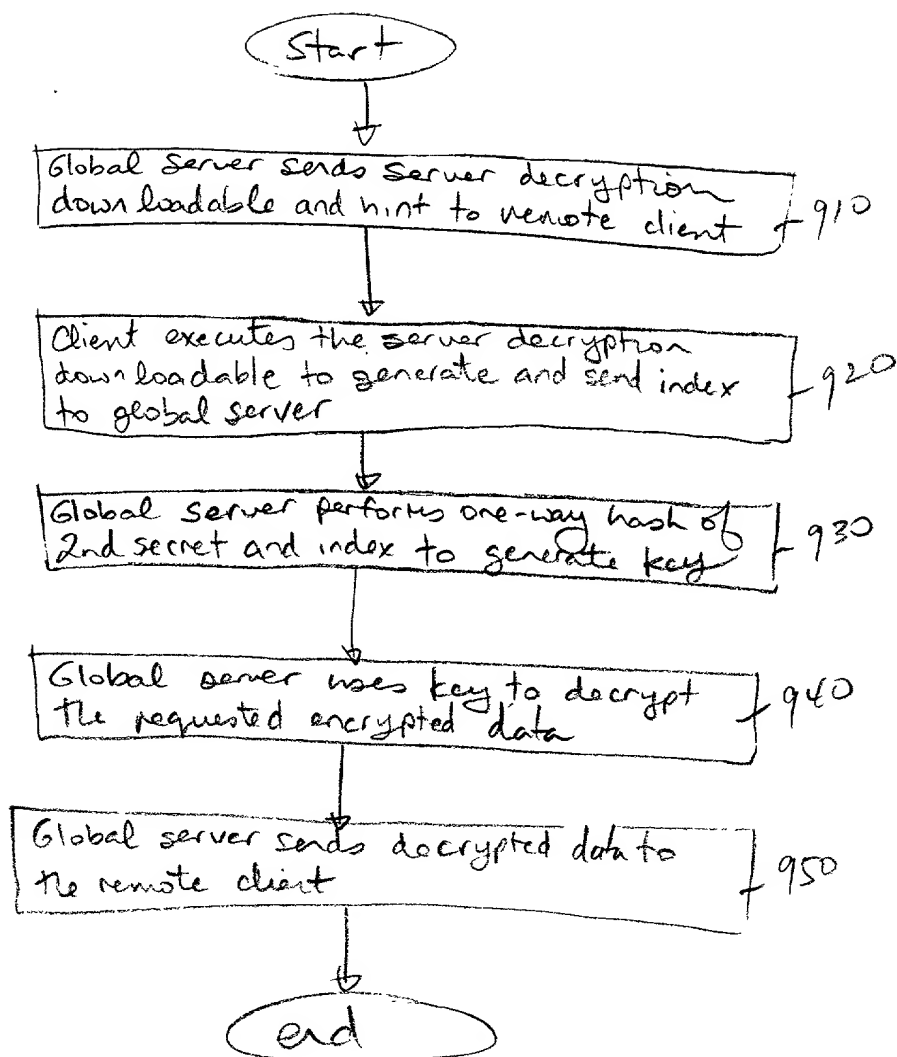 Start
Global Server sends server decryption
downloadable and hint to remote client
910
Client executes the server decryption
downloadable to generate and send index
to global server
920
Global Server performs one-way hash of
2nd secret and index to generate key
930
Global server uses key to decrypt
the requested encrypted data
940
Global server sends decrypted data to
the remote client
950
end